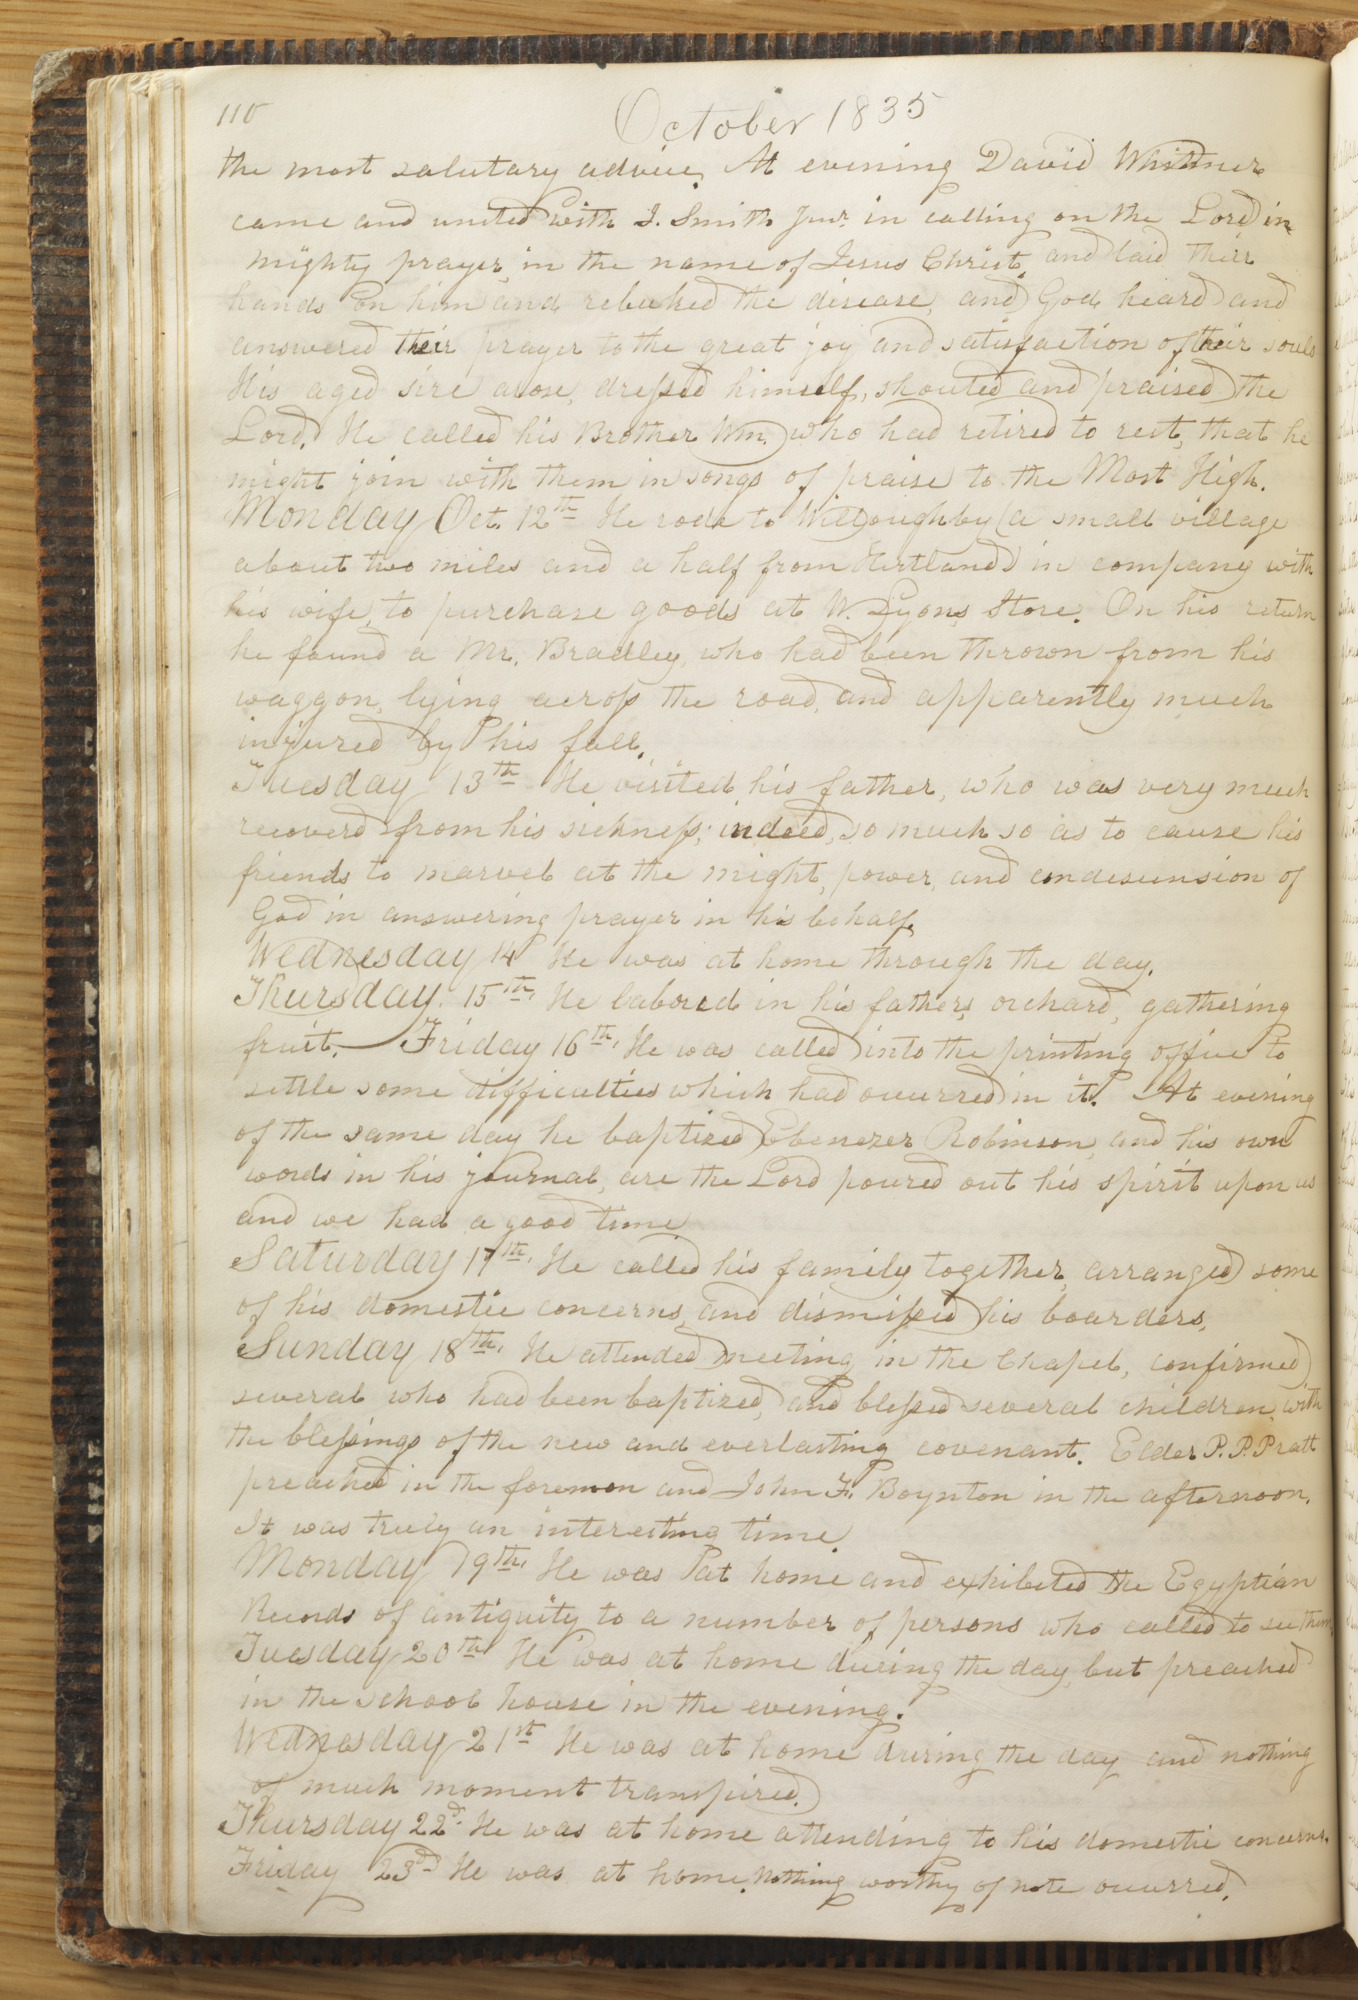 110
October 1835
the most salutary advice. At evening David Whitmer
came and united with J. Smith Junr. in calling on the Lord in
mighty prayer, in the name of Jesus Christ, and laid their
hands on him and rebuked the disease, and God heard and
answered their prayer to the great joy and satisfaction of their souls
His aged sire arose, dressed himself, shouted and praised the
Lord. He called his Brother Wm. who had retired to rest, that he
might join with them in songs of praise to the Most High.
Monday Oct. 12th He rode to Willoughby (a small village
about two miles and a half from Kirtland) in company with
his wife, to purchase goods at W. Lyons Store. On his return
he found a Mr. Bradley, who had been thrown from his
waggon, lying across the road, and apparently much
injured by his fall.
Tuesday 13th He visited his father, who was very much
recoverd from his sickness; indeed, so much so as to cause his
friends to marvel at the might, power, and condesension of
God in answering prayer in his behalf.
Wednesday 14 He was at home through the day.
Thursday. 15th, He labored in his fathers orchard, gathering
fruit. Friday 16th, He was called into the printing office to
settle some difficulties which had ocurred in it. At evening
of the same day he baptized Ebenezer Robinson, and his own
words in his journal, are the Lord poured out his spirit upon us
and we had a good time
Saturday 17th, He called his family together, arranged some
of his domestic concerns, and dismissed his boarders,
Sunday 18th, He attended meeting in the Chapel, confirmed
several who had been baptized, and blessed several children, with
the blessings of the new and everlasting covenant. Elder P. P. Pratt
preached in the forenoon and John F. Boynton in the afternoon.
It was truly an interesting time.
Monday 19th, He was at home and exhibited the Egyptian
Records of antiquity to a number of persons who called to see them
Tuesday 20th He was at home during the day, but preached
in the school house in the evening.
Wednesday 21st He was at home during the day and nothing
of much moment transpired.
Thursday 22d. He was at home attending to his domestic concerns.
Friday 23d He was at home. Nothing worthy of note ocurred.